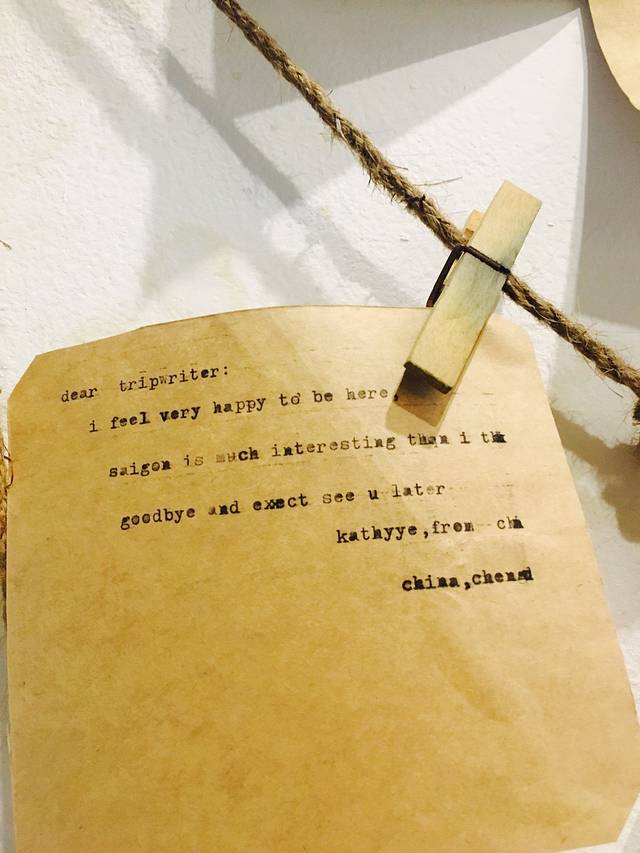 dear tripwriter:
i feel very happy to be here.
saigon is much interesting than i
goodbye and exect see u later
kathyye,from
china,